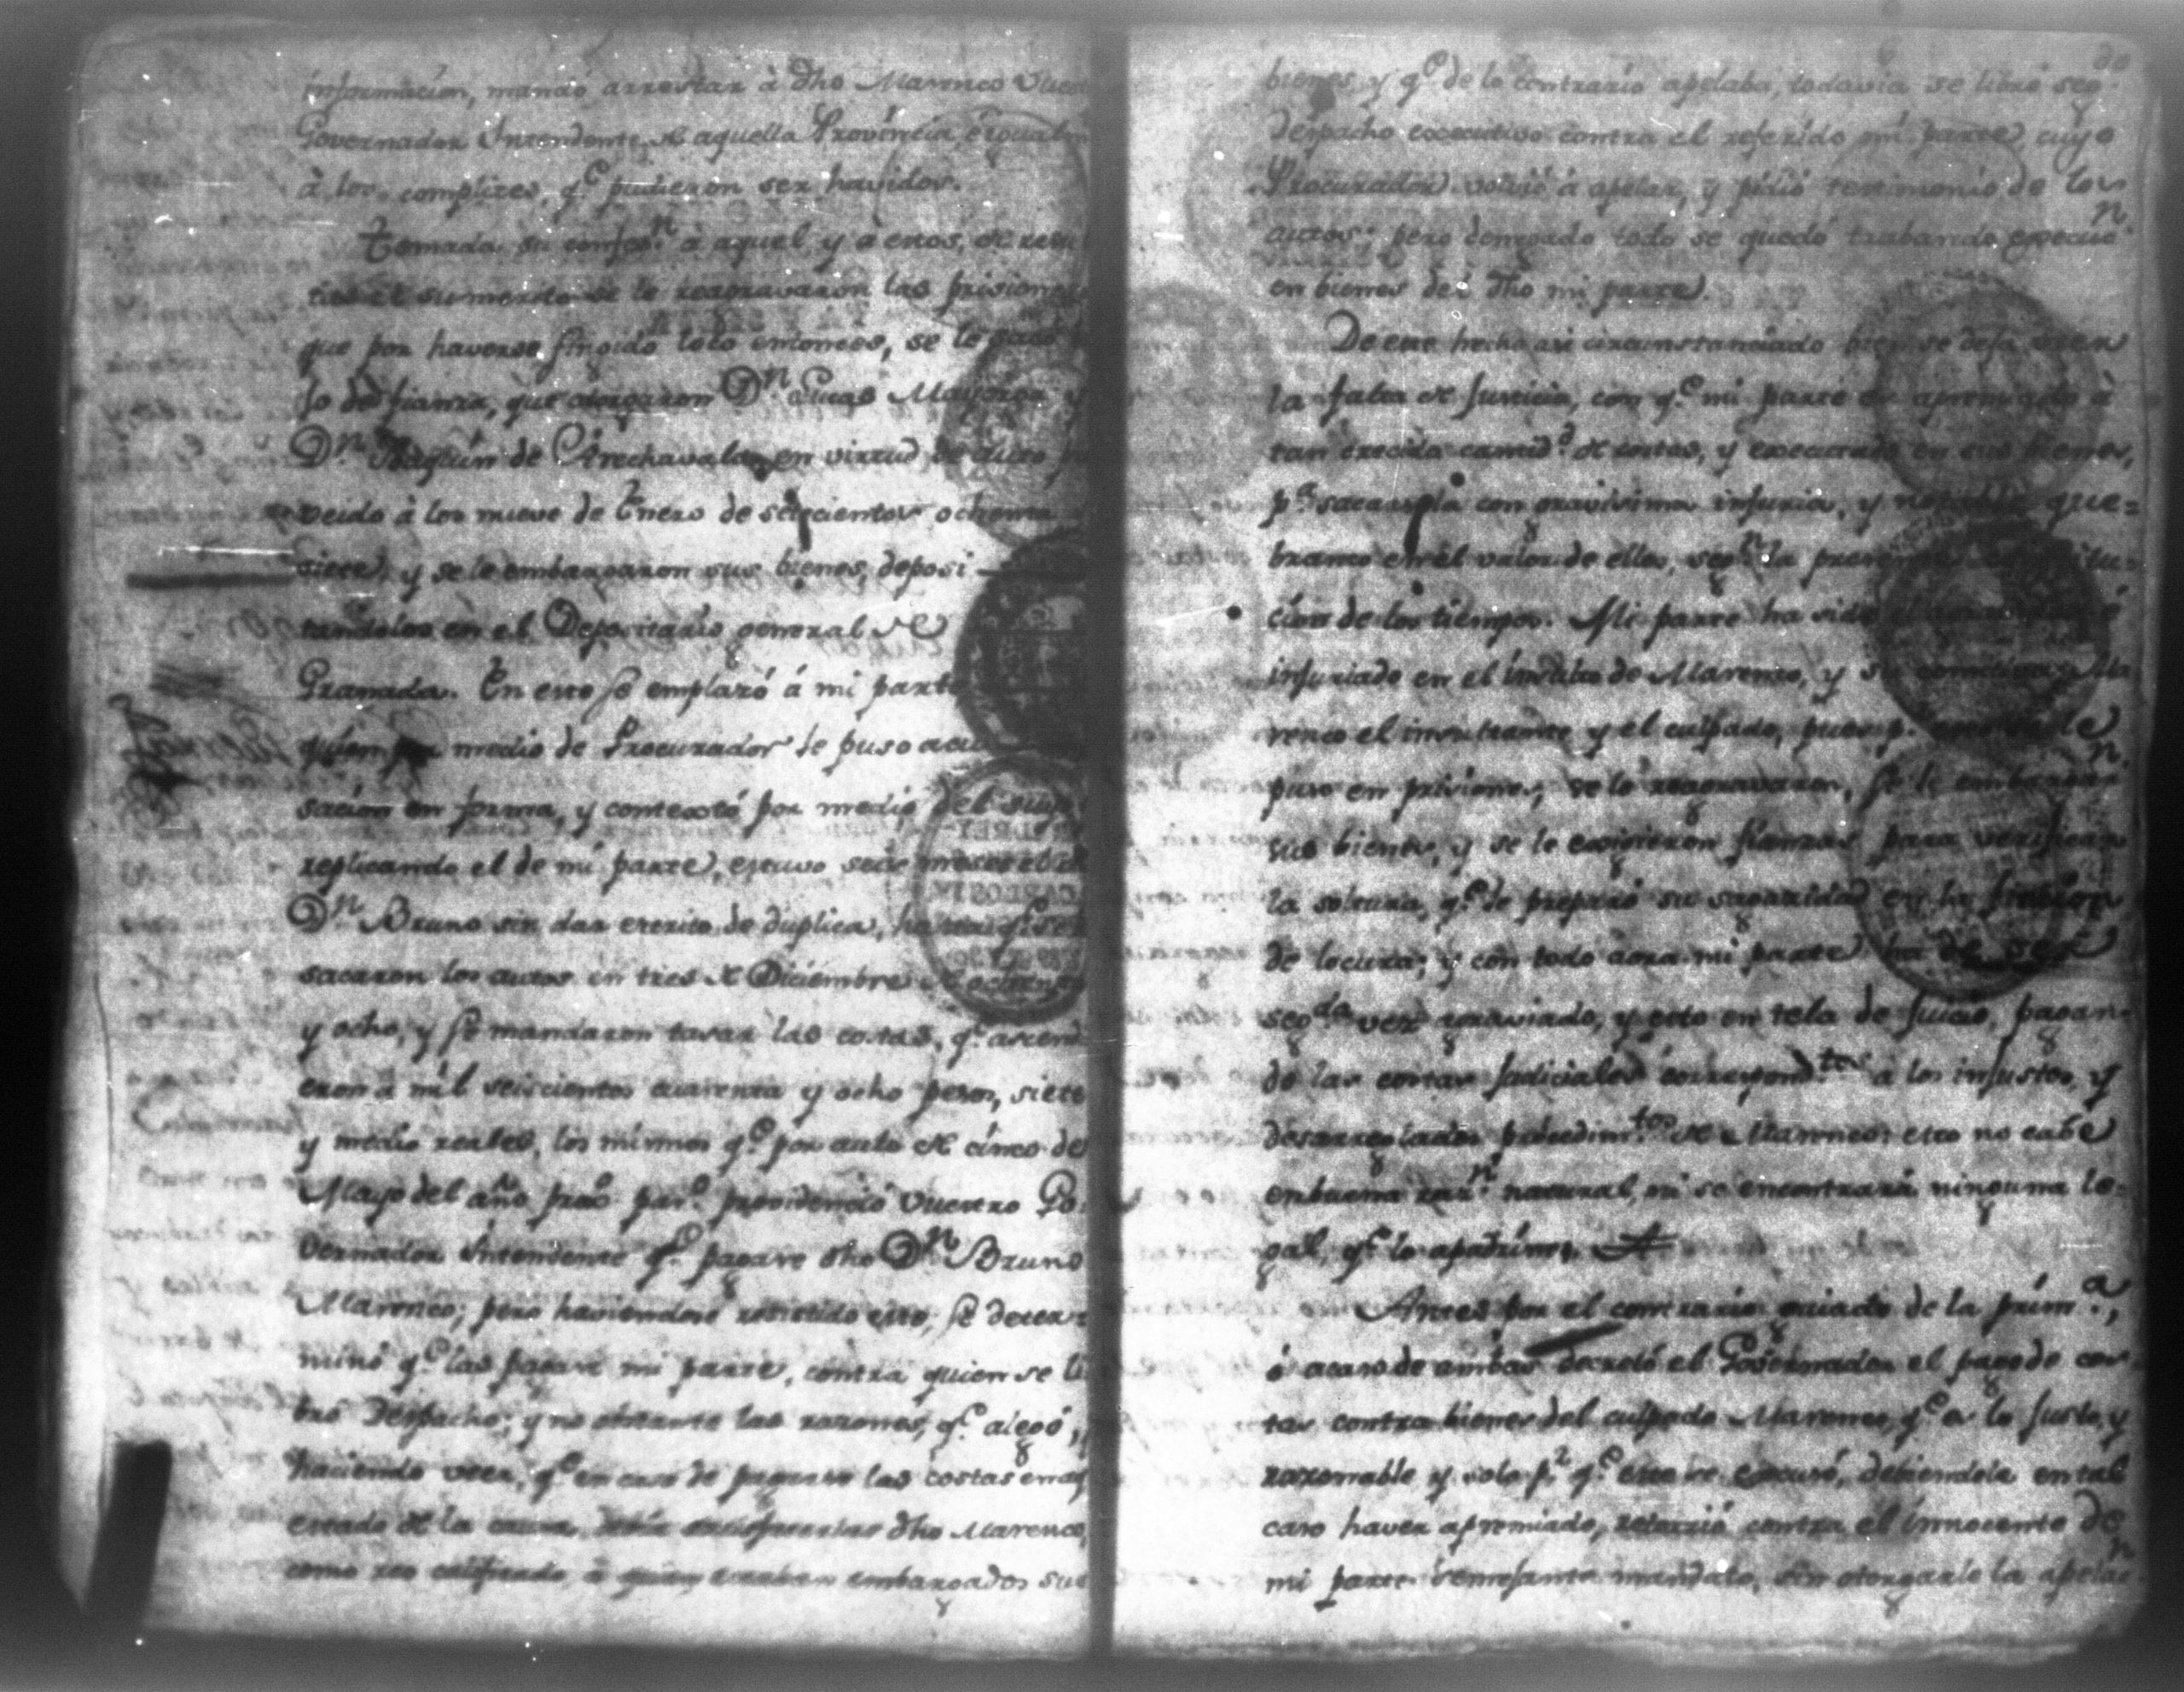 informacion, mandó arrestar à dho Marenco Vues
Governador Intendente de aquella Provincia, è igualm
à los complizes, q.e pudieron ser havidos.
Tomada su confes.n à aquel y a estos, de resu
tas el sumario se le reagravaron las prisiones
que por haverse fingido loco entonces, se le
jo de fianza, que otorgaron D.n Lucas Mayorga y
D.n Joaquin de Arechavala, en virtud de auto
veido à los nueve de Enero de setecientos ochenta
siete, y se le embargaron sus bienes, deposi
tandolos en el Depositario general de
Granada. En esto se emplazó á mi parte
quien por medio de Procurador le puso acu
sacion en forma, y contextó por medio del suyo
replicando el de mi parte, estuvo seis meses el
D.n Bruno sin dar escrito de duplica, hasta q.e se
sacaron los autos en tres de Diciembre de ochenta
y ocho, y se mandaron tasar las costas, q.e ascend
eron à mil seiscientos quarenta y ocho pesos, siete
y medio reales, los mismos q.e por auto de cinco de
Mayo del año prox.o pas.o providenció Vuestro Go
vernador Intendente q.e pagase dho D.n Bruno
Marenco; pero haviendose resistido esto, se deter
minó q.e las pagase mi parte, contra quien se li
bró Despacho; y no obstante las razones, q.e alegó,
haciendo veer, q.e en caso de pagarse las costas en
estado de la causa, debia dho Marenco,
como reo calificado, à quien estaban embargados sus
bienes y q.e de lo contrario apelaba, todavia se libró seg.do
despacho executivo contra el referido mi parte, cuyo
Procurador volvió à apelar, y pidió testimonio de los
autos; pero denegado todo se quedó trabando execuc.n
en bienes del dho mi parte.
De este hecho asi circunstanciado bien se deja veer
la falta de Justicia, con q.e mi parte es apremiado à
tan crecida cantid.d de costas, y executado en sus bienes,
p.a sacarsela con gravisima injuria, y notable que=
branto en el valor de ellos, seg.n la presente constitu=
cion de los tiempos. Mi parte ha sido
injuriado en el insulto de Marenco, y su comitiva, Ma
renco el insultante y el culpado, pues p. se le
puso en prisiones, se le reagravaron, se le embargar.n
sus bienes, y se le exigieron fianzas para verificar
la soltura, q.e le preparó su sagacidad en la ficcion
de locura; y con todo aora mi parte ha de ser
seg.da vez agraviado, y esto en tela de Juicio, pagan=
do las costas Judiciales correspond.tes a los injustos, y
desarreglados procedim.tos de Marenco: esto no cabe
en buena raz.n natural, ni se encontrará ninguna le=
gal, q.e lo apadrine.
Antes por el contrario guiado de la prim.a,
ó acaso de ambas decretó el Governador el pago de cos
tas contra bienes del culpado Marenco, q.e es lo Justo, y
razonable y solo p.r q.e este se excusó, debiendole en tal
caso haver apremiado, retorció contra el innocente de
mi parte semejante mandato, sin otorgarle la apelac.n